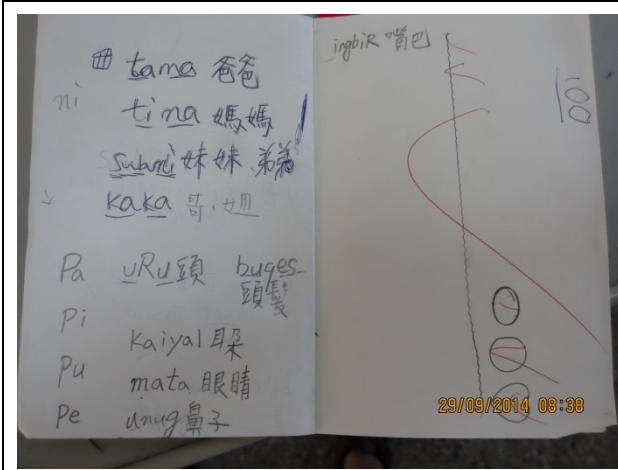 田 tama 爸爸
ni ti na 媽媽
suani 妹妹 弟弟
kaka 哥.姐
Pa uRu 頭 buqes 頭髮
Pi
kaiyal 耳朵
Pu
mata 眼睛
Pe unug 鼻子
ingbiR 嘴巴
100
29/09/2014 08:38